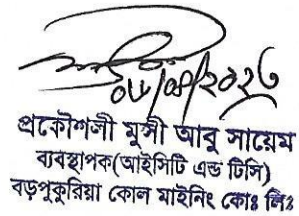 ০৮/০৪/২০২৩
প্রকৌশলী মুন্সী আবু সায়েম
ব্যবস্থাপক(আইসিটি এন্ড টিসি)
বড়পুকুরিয়া কোল মাইনিং কোঃ লিঃ